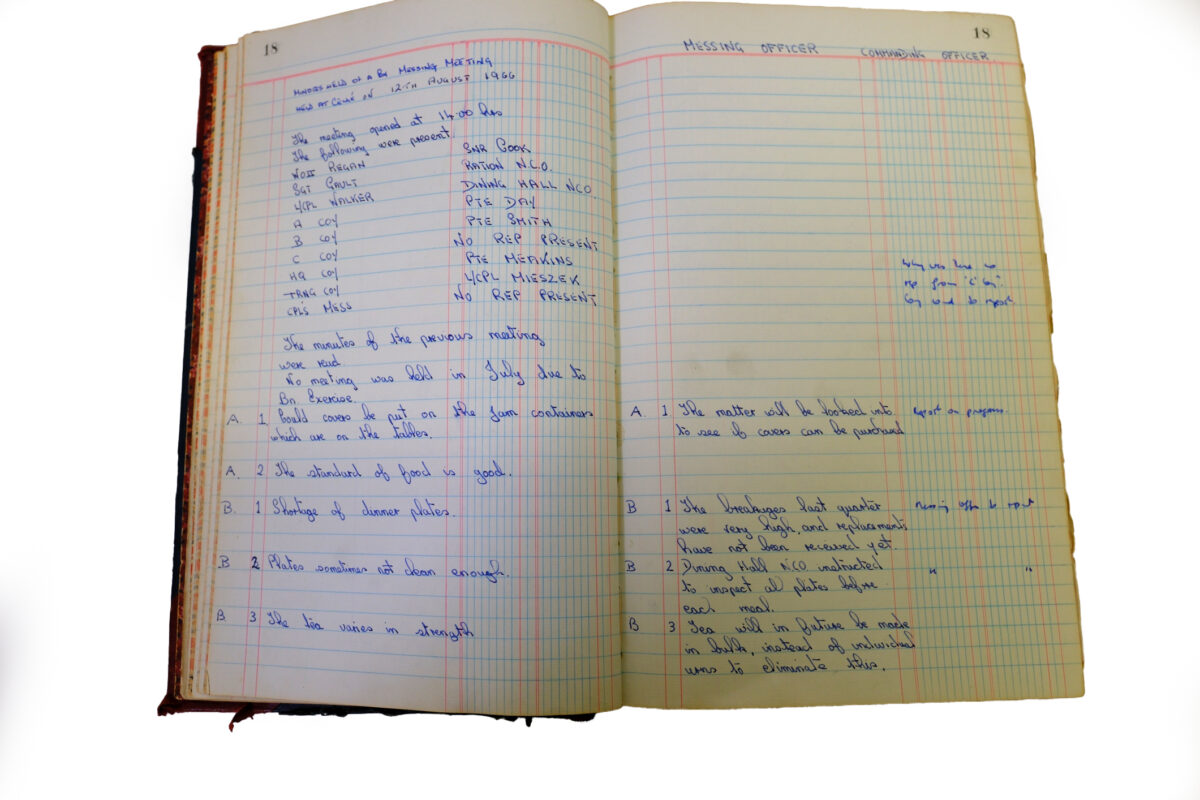 18
MINUTES HELD OF A BN MESSING MEETING
HELD AT CELLE ON 12TH AUGUST 1966
The meeting opened at 14.00 hrs
The following were present.
WOII REGAN SNR COOK
SGT GAULT RATION N.C.O.
L/CPL WALKER DINING HALL NCO
A COY PTE DAY
B COY PTE SMITH
C COY NO REP PRESENT
HQ COY PTE MEAKINS
TRNG COY L/CPL MIESZEK
CPLS MESS NO REP PRESENT
The minutes of the previous meeting
were read.
No meeting was held in July due to
Bn. Exercise.
A. 1. Could covers be put on the jam containers
which are on the tables.
A. 2 The standard of food is good.
B. 1 Shortage of dinner plates.
B 2 Plates sometimes not clean enough.
B 3 The tea varies in strength
18
MESSING OFFICER COMMANDING OFFICER
Why was there no
rep from 'C' Coy.
Coy Comd to report
A. 1 The matter will be looked into Report on progress.
to see if covers can be purchased
B 1 The breakages last quarter Messing offr to report
were very high, and replacements
have not been received yet.
B 2 Dining Hall NCO instructed " "
to inspect all plates before
each meal.
B 3 Tea will in future be made
in bulk, instead of individual
urns to eliminate this.